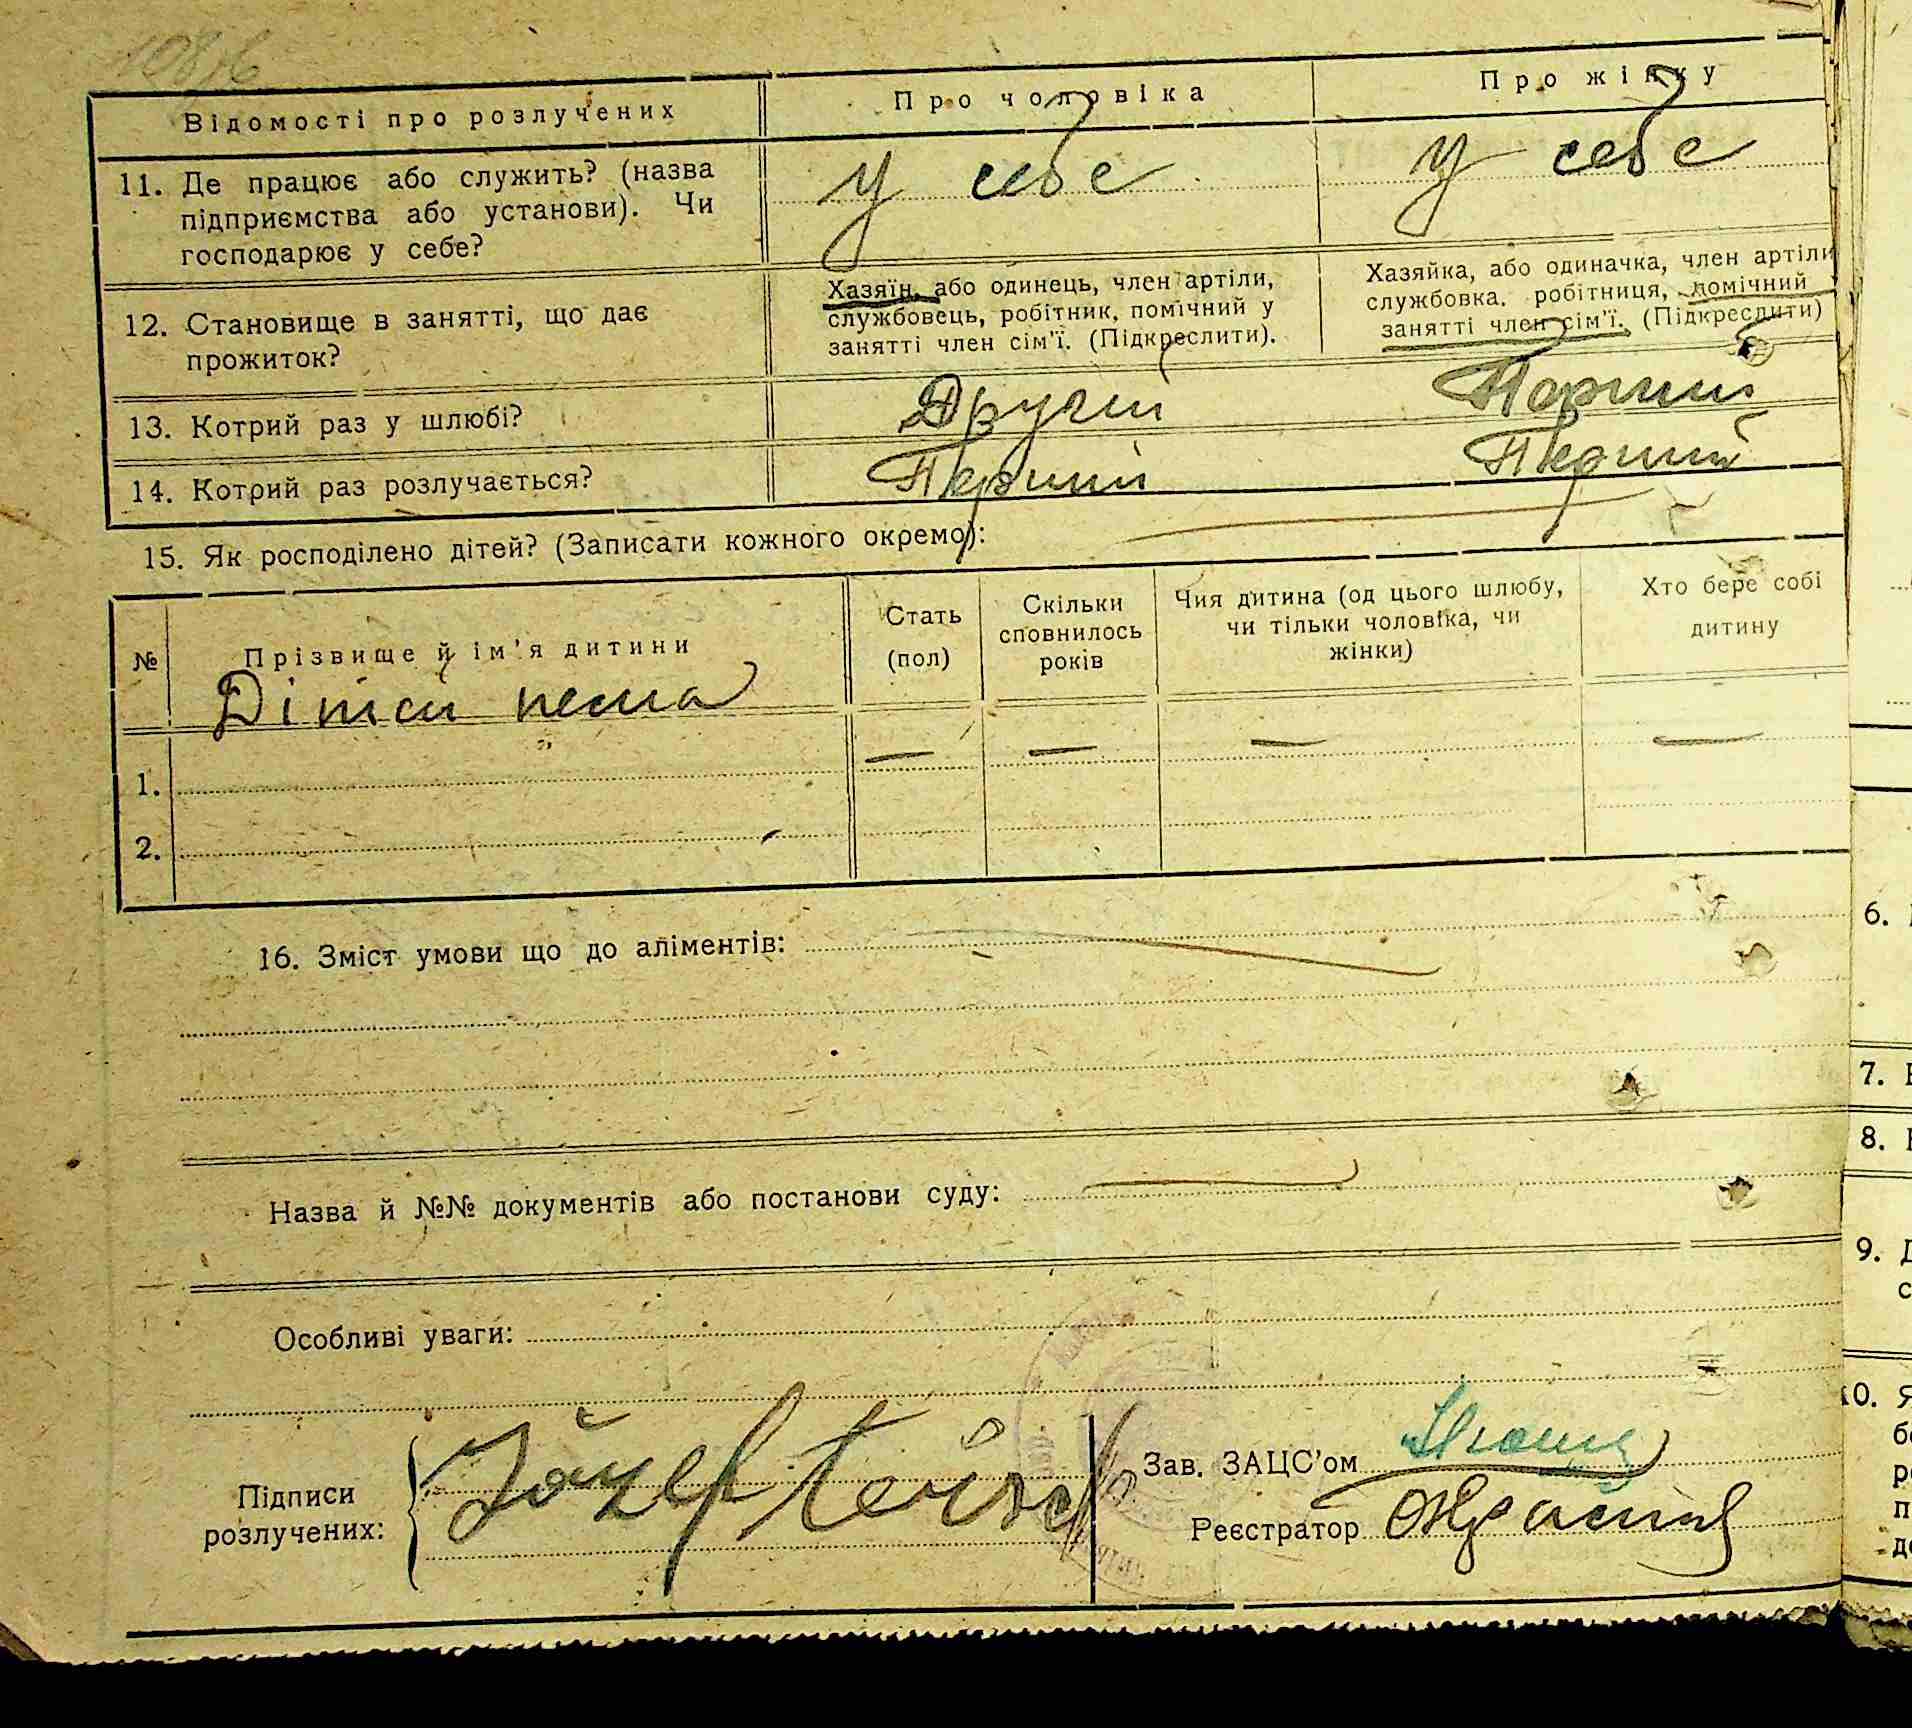 Відомості про розлучених
Про чоловіка
Про жінку
11. Де працює або служить? (назва
підприємства або установи). Чи
господарює у себе?
у себе
у себе
12. Становище в занятті, що дає
прожиток?
Хазяїн, або одинець, член артіли,
службовець, робітник, помічний у
занятті член сім'ї. (Підкреслити).
Хазяйка, або одиначка, член артіли
службовка. робітниця, помічний
занятті член сім'ї. (Підкреслити)
13. Котрий раз у шлюбі?
Другий
Перший
14. Котрий раз розлучається?
Перший
Перший
15. Як росподілено дітей? (Записати кожного окремо):
№
Прізвище й ім'я дитини
Стать
(пол)
Скільки
сповнилось
років
Чия дитина (од цього шлюбу,
чи тільки чоловіка, чи
жінки)
Хто бере собі
дитину
Дітей нема
1. — — — —
2.
16. Зміст умови що до аліментів:
Назва й №№ документів або постанови суду:
Особливі уваги:
Підписи
розлучених:
Józef
Зав. ЗАЦС'ом
Реєстратор
6.
7.
8.
9.